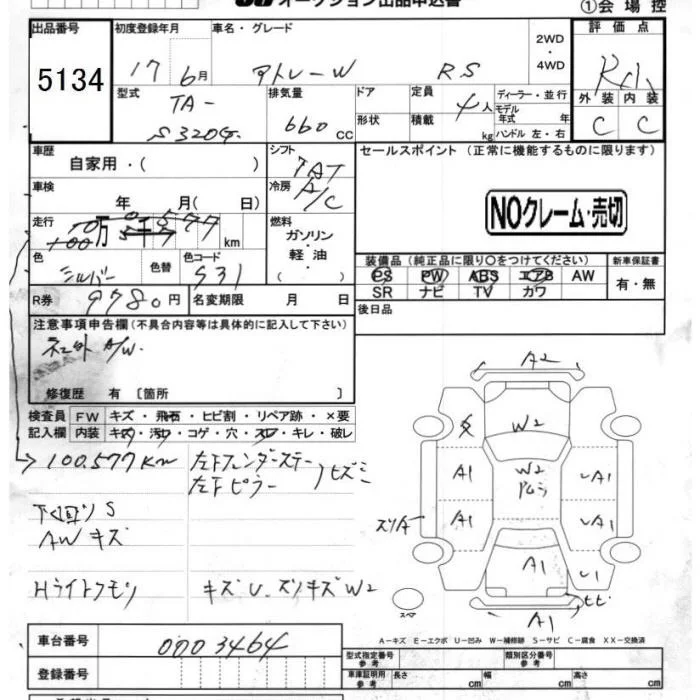 オークション出品申込書
①会場控
出品番号 初度登録年月 車名・グレード 2WD・4WD 評価点
5134 17 6月 アトレーW RS
型式 TA-S320G 排気量 660 CC ドア 形状 定員 4人 積載 kg ディーラー・並行 モデル年式 年 ハンドル 左・右 外装 内装
C C
車歴 自家用・( ) シフト セールスポイント (正常に機能するものに限ります)
車検 年 月( 日) 冷房 A/C
NOクレーム・売切
走行 万 千 km 燃料 ガソリン・軽油・( )
色 シルバー 色替 色コード S31
装備品(純正品に限り○をつけてください) 新車保証書
PS PW ABS エアB AW 有・無
SR ナビ TV カワ
R券 9780円 名変期限 月 日 後日品
注意事項申告欄(不具合内容等は具体的に記入して下さい)
A/W.
修復歴 有 [箇所 ]
検査員記入欄 FW キズ・飛石・ヒビ割・リペア跡・×要
内装 キズ・汚れ・コゲ・穴・スレ・キレ・破レ
100,577Km 左下フェンダーステー
左下ピラー ヒズミ
下回リS
AWキズ
Hライトクモリ キズU.ズリキズW2
A2
W2
A1 W2 A1
A1 A1
ズリA
A1 U1
A1
スペア
A-キズ E-エクボ U-凹み W-補修跡 S-サビ C-腐食 XX-交換済
車台番号 0003464
登録番号
型式指定番号 参考 類別区分番号 参考
車庫証明用 参考 長さ cm 幅 cm 高さ cm